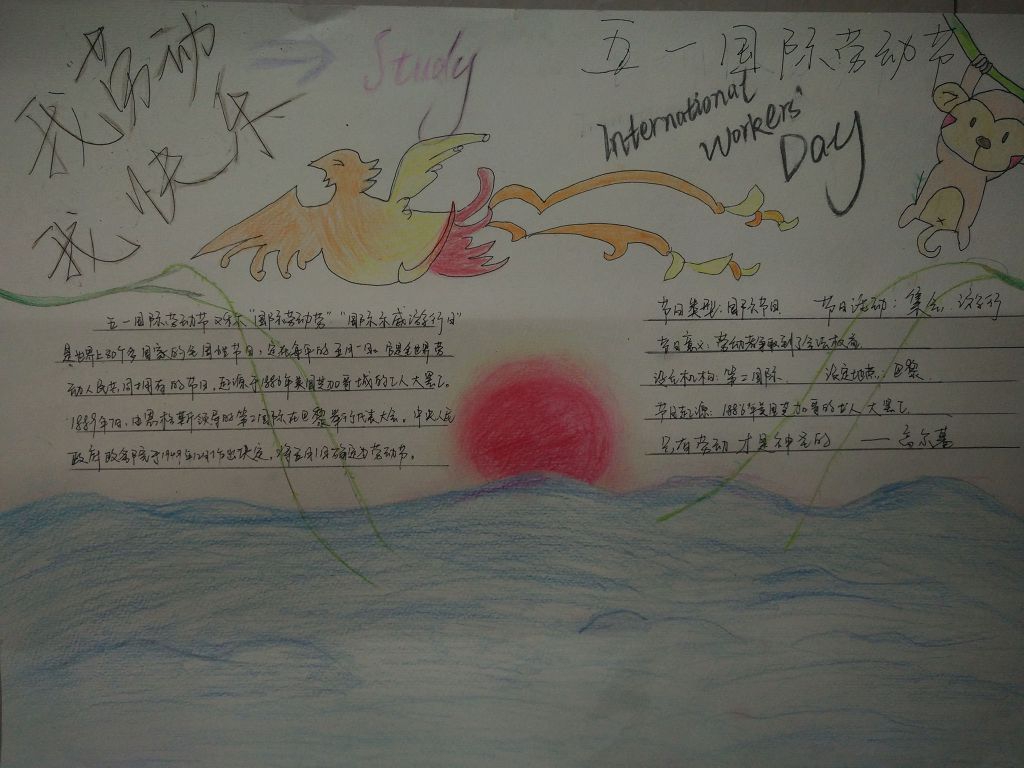 我劳动
我快乐
Study
五一国际劳动节
International
Workers'
Day
五一国际劳动节又称"国际劳动节""国际示威游行日"
是世界上80多个国家的全国性节日，定在每年的五月一日。它是全世界劳
动人民共同拥有的节日，起源于1886年美国芝加哥城的工人大罢工。
1889年7月，由恩格斯领导的第二国际在巴黎举行代表大会。中央人民
政府政务院于1949年12月作出决定，将五月1日确定为劳动节。
节日类型：国际节日 节日活动：集会、游行
节日意义：劳动者争取到了合法权益
设立机构：第二国际 设定地点：巴黎
节日起源：1886年美国芝加哥的工人大罢工
只有劳动才是神圣的 ——高尔基